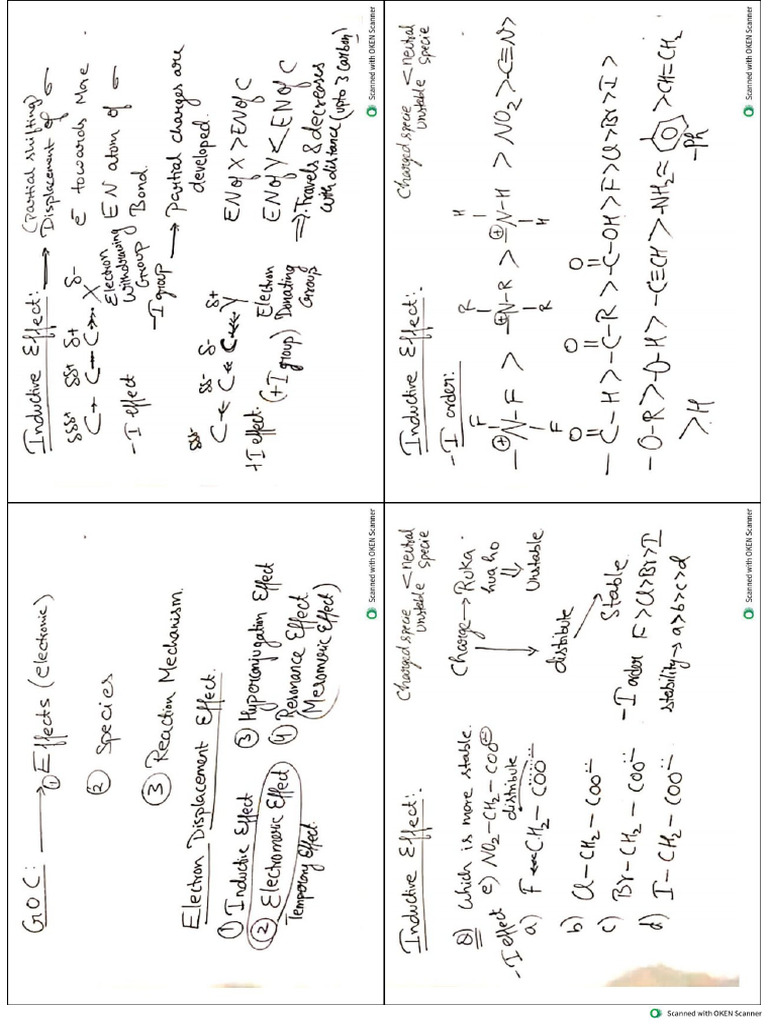 GOC: → ① Effects (electronic)
② Species
③ Reaction Mechanism.
Electron Displacement Effect.
① Inductive Effect
③ Hyperconjugation Effect
② Electromeric Effect
④ Resonance Effect
Temporary Effect.
(Mesomeric Effect)
Scanned with OKEN Scanner
Inductive Effect: → (Partial shifting)
Displacement of σ
e⁻ towards More
EN atom of σ
Bond.
δδδ+ δδ+ δ+ δ-
C→C→C→X
Electron
withdrawing
Group
-I group
-I effect
→ Partial charges are
developed.
δδδ- δδ- δ- δ+
C←C←C←Y
Electron
Donating
Group
+I effect. (+I group)
EN of X > EN of C
EN of Y < EN of C
⇒ Travels & decreases
with distance (upto 3 carbon)
Scanned with OKEN Scanner
Inductive Effect:
Charged specie < neutral
Unstable specie
Q) Which is more stable.
-I effect e) NO₂-CH₂-COO⊖
distribute
a) F←CH₂-COO⁻
b) Cl-CH₂-COO⁻
c) Br-CH₂-COO⁻
d) I-CH₂-COO⁻
Charge → Ruka
hua ho
⇓
Unstable
distribute
Stable.
-I order F>Cl>Br>I
stability → a>b>c>d
Scanned with OKEN Scanner
Inductive Effect:
Charged specie < neutral
Unstable specie
-I order:
F R H
-N⊕-F > -N⊕-R > -N⊕-H > NO₂ > -C≡N >
F R H
O O O
-C-H > -C-R > -C-OH > F > Cl > Br > I >
-O-R > O-H > -C≡CH > -NH₂ = > CH=CH₂
-Ph
> H
Scanned with OKEN Scanner
Scanned with OKEN Scanner